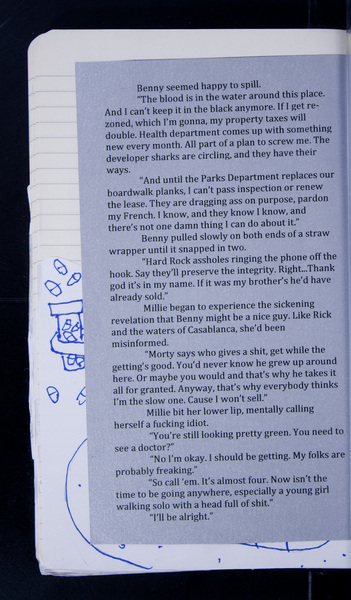 Benny seemed happy to spill.
“The blood is in the water around this place.
And I can’t keep it in the black anymore. If I get re-
zoned, which I’m gonna, my property taxes will
double. Health department comes up with something
new every month. All part of a plan to screw me. The
developer sharks are circling, and they have their
ways.
“And until the Parks Department replaces our
boardwalk planks, I can’t pass inspection or renew
the lease. They are dragging ass on purpose, pardon
my French. I know, and they know I know, and
there’s not one damn thing I can do about it.”
Benny pulled slowly on both ends of a straw
wrapper until it snapped in two.
“Hard Rock assholes ringing the phone off the
hook. Say they’ll preserve the integrity. Right...Thank
god it’s in my name. If it was my brother’s he’d have
already sold.”
Millie began to experience the sickening
revelation that Benny might be a nice guy. Like Rick
and the waters of Casablanca, she’d been
misinformed.
“Morty says who gives a shit, get while the
getting’s good. You’d never know he grew up around
here. Or maybe you would and that’s why he takes it
all for granted. Anyway, that’s why everybody thinks
I’m the slow one. Cause I won’t sell.”
Millie bit her lower lip, mentally calling
herself a fucking idiot.
“You’re still looking pretty green. You need to
see a doctor?”
“No I’m okay. I should be getting. My folks are
probably freaking.”
“So call ’em. It’s almost four. Now isn’t the
time to be going anywhere, especially a young girl
walking solo with a head full of shit.”
“I’ll be alright.”